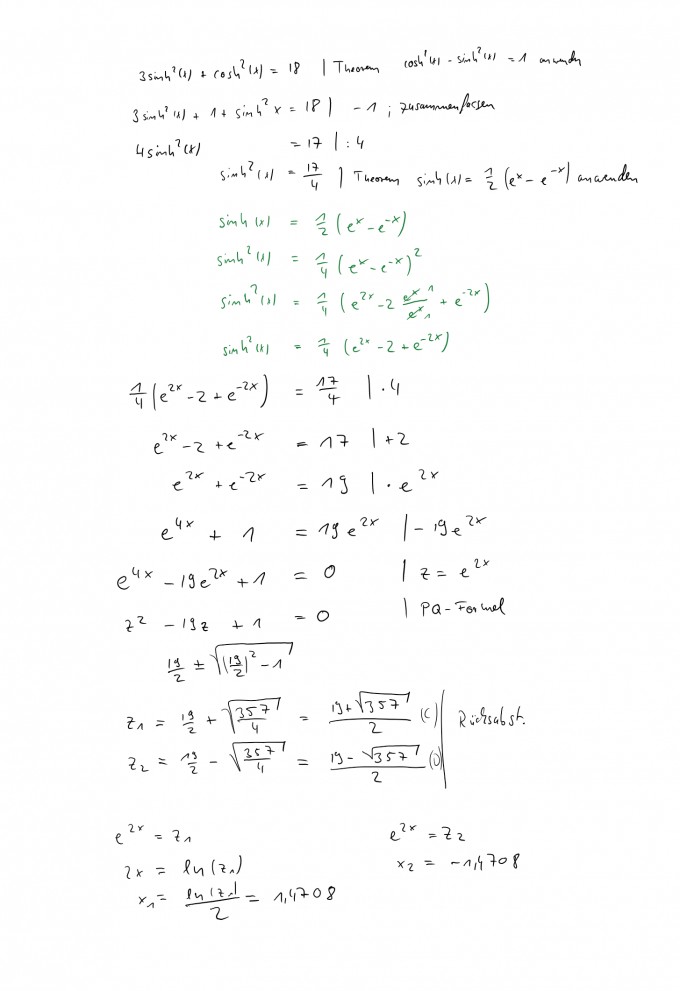 3 sinh²(x) + cosh²(x) = 18 | Theorem cosh²(x) - sinh²(x) = 1 anwenden
3 sinh²(x) + 1 + sinh² x = 18 | -1 ; zusammenfassen
4 sinh²(x) = 17 | : 4
sinh²(x) = 17/4 | Theorem sinh(x) = 1/2 (e^x - e^-x) anwenden
sinh(x) = 1/2 (e^x - e^-x)
sinh²(x) = 1/4 (e^x - e^-x)²
sinh²(x) = 1/4 (e^2x - 2 e^x/e^x + e^-2x)
sinh²(x) = 1/4 (e^2x - 2 + e^-2x)
1/4 (e^2x - 2 + e^-2x) = 17/4 | · 4
e^2x - 2 + e^-2x = 17 | +2
e^2x + e^-2x = 19 | · e^2x
e^4x + 1 = 19 e^2x | - 19 e^2x
e^4x - 19e^2x + 1 = 0 | z = e^2x
z² - 19z + 1 = 0 | PQ-Formel
19/2 ± √((19/2)² - 1)
z1 = 19/2 + √(357/4) = (19 + √357)/2 (C) | Rücksubst.
z2 = 19/2 - √(357/4) = (19 - √357)/2 (D)
e^2x = z1 e^2x = z2
2x = ln(z1) x2 = -1,4708
x1 = ln(z1)/2 = 1,4708